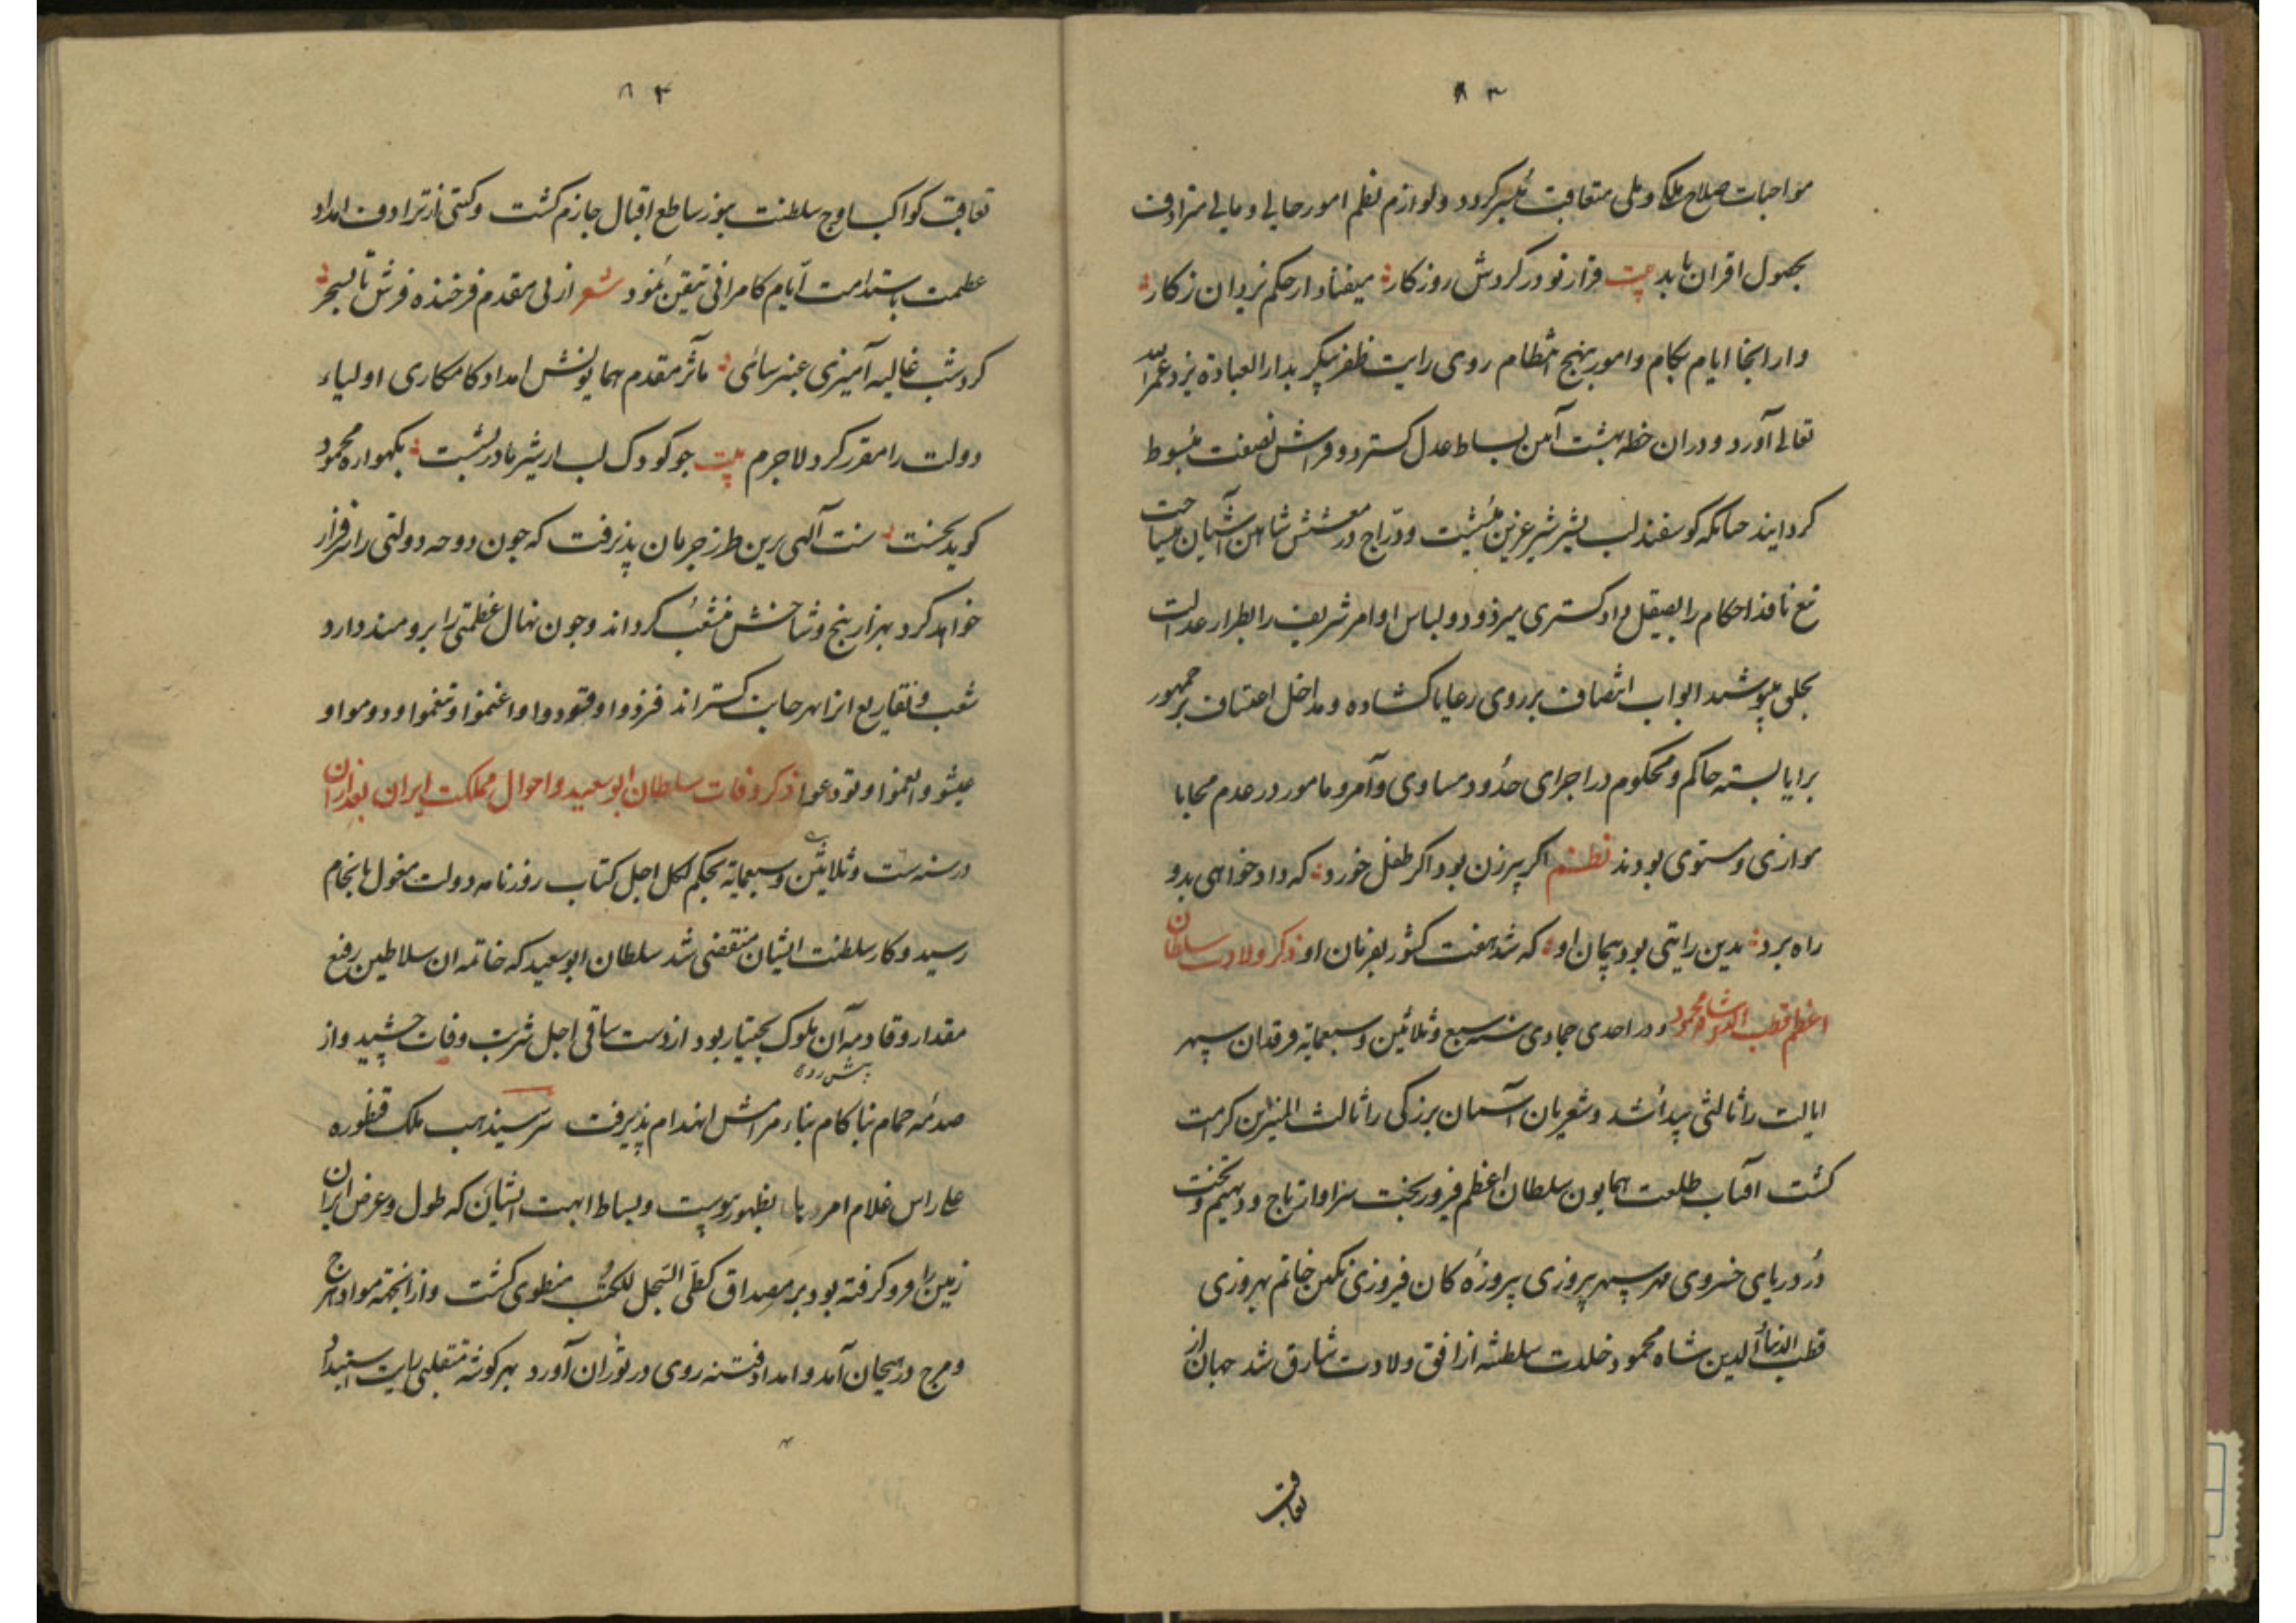 ۸۳
مواجبات صلاح ملکی و ملی متعاقب میسر کردد و لوازم نظم امور حالی و مالی مترادف
بحصول اقران یابد بیت قرار نو در کردش روزکار میفتاد از حکم یزدان زکار
و از انجا ایام بکام و امور بنهج انتظام روی رایت ظفر پیکر بدار العباده یزد عمره الله
تعالی آورد و در ان خطه بهشت آیین بساط عدل کسترد و فراش نصفت مبسوط
کردانید جنانکه کوسفند لب بشیر شیر عرین میشست و دراج در معشش شاهین آشیان میساخت
تیغ نافذ احکام را بصیقل دادکستری میزدود و لباس اوامر شریف را بطراز عدالت
بحلی میپوشید ابواب انتصاف بر روی رعایا کشاده و مداخل اعتساف بر جمهور
برایا بسته حاکم و محکوم در اجرای حدود مساوی و آمر و مامور در عدم محابا
موازی و مستوی بودند نظم اکر پیرزن بود اکر طفل خورد که داد خواهی بدو
راه برد بدین رایتی بود پیمان او که شد هفت کشور بفرمان او ذکر ولادت سلطان
اعظم قطب الدین شاه محمود و در احدی جمادی سنه سبع و ثلاثین و سبعمایه فرقدان سپهر
ایالت را ثالثی پیدا شد و شعریان آسمان بزرکی را ثالث النیرین کرامت
کشت آفتاب طلعت همایون سلطان اعظم فیروز بخت سزاوار تاج و دیهیم و تخت
در دریای خسروی مهر سپهر پیروزی پیروزه کان فیروزی نکین خاتم بهروزی
قطب الدنیا و الدین شاه محمود خلدت سلطنته از افق ولادت شارق شد جهان از
تعاقب
۸۴
تعاقب کواکب اوج سلطنت بنور ساطع اقبال جازم کشت و کیتی از ترادف امداد
عظمت باستدامت ایام کامرانی متیقن نمود شعر از پی مقدم فرخنده فرش تا بسحر
کرد شب غالیه آمیزی عنبر سائی مآثر مقدم همایونش امداد کامکاری اولیاء
دولت را مقرر کرد لاجرم بیت جو کودک لب از شیر مادر بشست بکهواره محمود
کوید نخست سنت آلهی برین طرز جریان پذیرفت که جون دوحه دولتی را سرافراز
خواهد کرد بهزار بیخ و شاخش منشعب کرداند و جون نهال عظمتی را برومند دارد
شعب و تفاریع انرا بهر جانب کستراند فزودوا و قودوا و اغنموا و تنعموا و دوموا و
عیشوا و انعموا و تودعوا ذکر وفات سلطان ابو سعید و احوال مملکت ایران بعد از ان
در سنه ست و ثلاثین و سبعمایه بحکم لکل اجل کتاب روزنامه دولت مغول بانجام
رسید و کار سلطنت ایشان منقضی شد سلطان ابو سعید که خاتمه ان سلاطین رفیع
مقدار و قادمه آن ملوک بختیار بود از دست ساقی اجل شربت وفات چشید و از
صدمه حمام ناکام بناء مرامش انهدام پذیرفت سر سیذهب ملک قنطوره
علی راس غلام امرد بظهور پیوست و بساط ابهت ایشان که طول و عرض ایران
زمین را فرو کرفته بود بر مصداق کطی السجل للکتب منطوی کشت و از انجمله مواد هرج
و مرج در هیجان آمد و امداد فتنه روی در توران آورد بهر کوشه متغلبی رایت استبداد